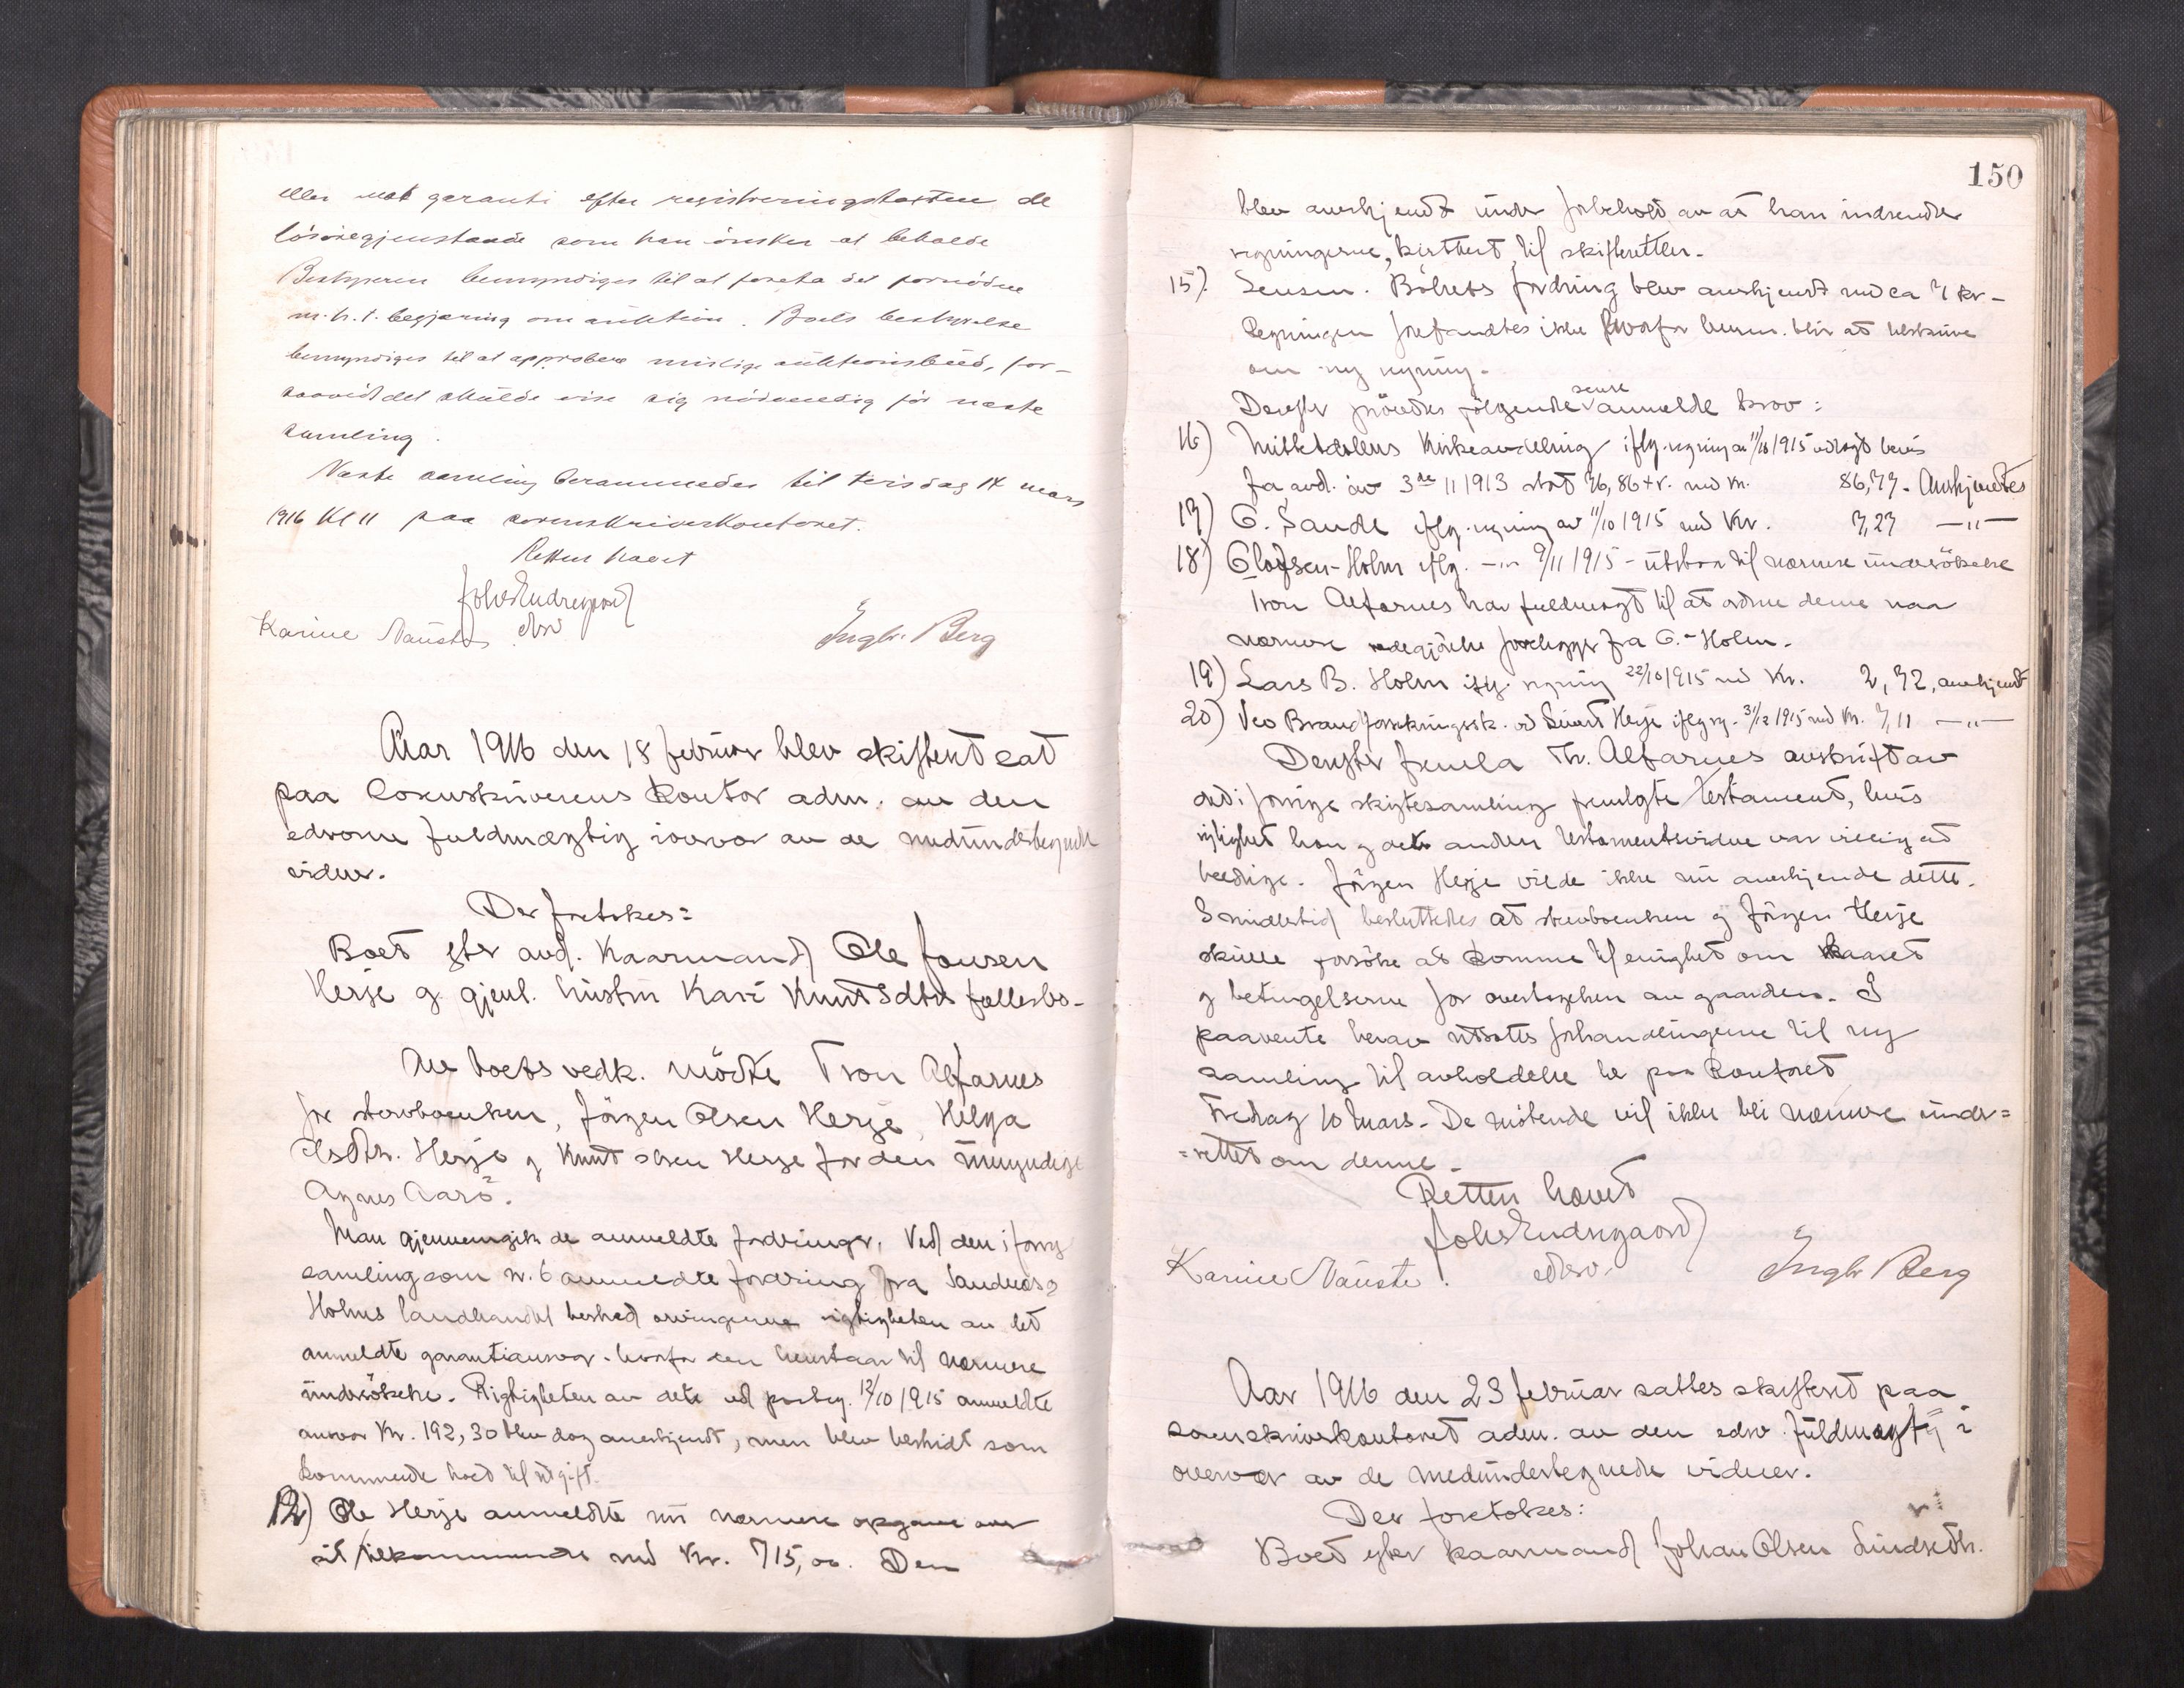 eller mot garanti efter registreringstaxten de
lösöregjenstande som han önsker at beholde
Bestyreren bemyndiges til at foreta det fornödne
m.h.t. begjæring om auktion. Boets bestyrelse
bemyndiges til at approbere mulige auktionsbud, for-
saavidt det skulde vise sig nödvendig för næste
samling.
Næste samling berammedes til tirsdag 14 mars
1916 Kl 11 paa sorenskriverkontoret.
Retten hævet
Johs Endregaard
Karine Nauste edsv Ingbr. Berg
Aar 1916 den 18 februar blev skifteret sat
paa Sorenskriverens Kontor adm. av den
edsvorne fuldmægtig iovervær av de medundertegnede
vidner.
Der foretokes:
Boet efter avd. Kaarmand Ole Jonsen
Herje og gjenl. hustru Kari Knutsdtrs fællesbo-
Av boets vedk. mödte Tron Alfarnes
for stervboenken, Jörgen Olsen Herje, Helga
Olsdtr. Herje og Knut Olsen Herje for den umyndige
Agnes Aarö.
Man gjennemgik de anmeldte fordringer. Ved den i forrige
samling som nr. 6 anmeldte fordring fra Sandnes &
Holms landhandel bestred arvingerne rigtigheten av det
anmeldte garantiansvar. hvorfor den henstaar til nærmere
undersökelse. Rigtigheten av dete ved posteg. 12/10 1915 anmeldte
ansvar Kr. 192,30 blev dog anerkjendt, men blev bestridt som
kommende boet til utgift.
12) Ole Herje anmeldte nu nærmere opgave over
sit tilkommende med Kr. 715,00. Den
150
blev anerkjendt under forbehold av at han indsender
regningerne, kvittert, til skifteretten.
15) Jensen. Bölvets fordring blev anerkjendt med ca 7 kr-
Regningen forefandtes ikke hvorfor bemn. blir at tilskrive
om ny regning.
Derefter prövedes fölgende senere anmeldte krav:
16) Mittetdalens Kirkeavdeling iflg. regning av 11/10 1915 vedlagt bevis
fra avd. av 3de 11 1913 stort 76,86 + r. med Kr. 86,77. Anerkjendtes
17) O. Sande iflg. regning av 11/10 1915 med Kr. 7,27 —"—
18) Olafsen-Holm iflg. —"— 9/11 1915 - utstaar til nærmere undersökelse
Tron Alfarnes har fuldmagt til at ordne denne naar
nærmere redegjörelse foreligger fra O.-Holm.
19) Lars B. Holm iflg. regning 22/10 1915 med Kr. 2,72, anerkjendt
20) Veö Brandforsikringssk. ved Sivert Herje iflg rg. 31/12 1915 med Kr. 7,11 —"—
Derefter fremla Tr. Alfarnes avskrift av
det i forrige skiftesamling fremlagte testament, hvis
rigtighet han og det andet testamentsvidne var villig at
beedige. Jörgen Herje vilde ikke nu anerkjende dette.
Imidlertid besluttedes at stervboenken og Jörgen Herje
skulle forsöke at komme til enighet om kaaret
og betingelserne for overtagelsen av gaarden. I
paavente herav utsattes forhandlingerne til ny
samling til avholdelse her paa Kontoret
Fredag 10 Mars. De mötende vil ikke bli nærmere under=
=rettet om denne.
Retten hævet
Johs Endregaard
Karine Nauste. edsv. Ingbr Berg
Aar 1916 den 23 februar sattes skifteret paa
sorenskriverkontoret adm. av den edsv. fuldmægtig i
overvær av de medundertegnede vidner.
Der foretokes:
Boet efter kaarmand Johan Olsen Lindseth.